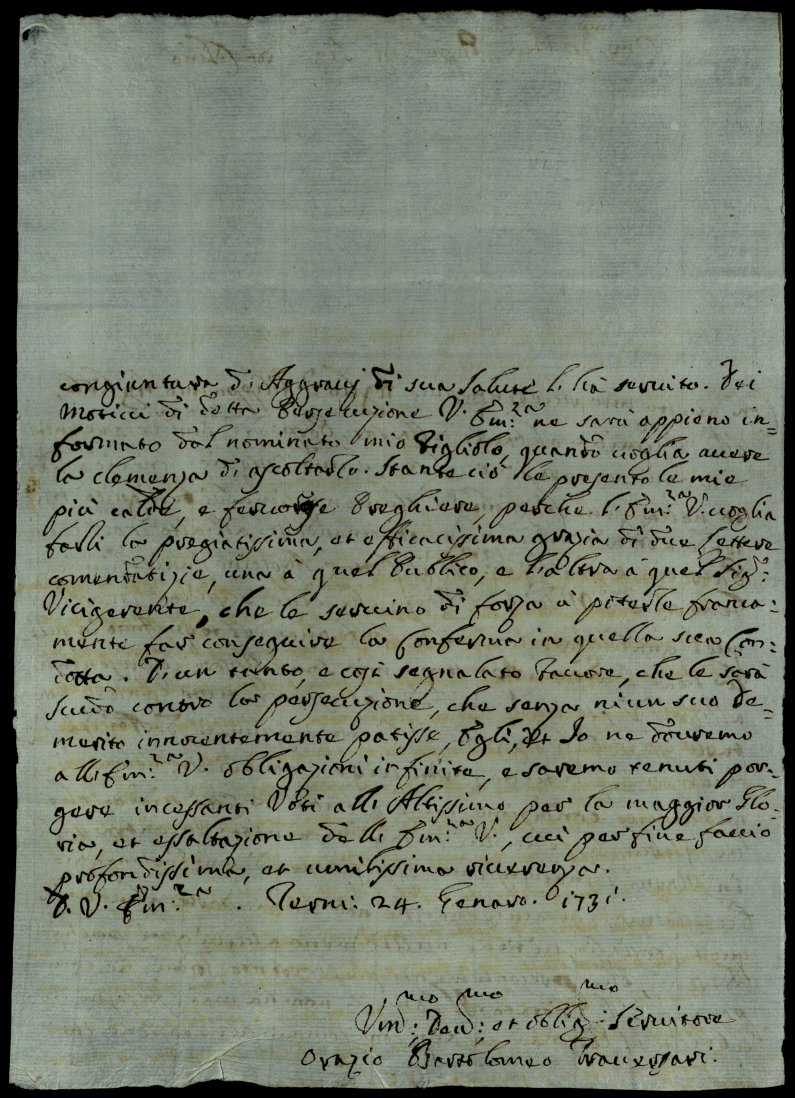 congiuntura di Aggravij di sua salute l'hà servito. Dei
Motivi di detta Persecuzione V. Em:za ne sarà appieno in=
formato dal nominato mio Figliolo, quando voglia avere
la clemenza di ascoltarlo. Stante ciò le presento le mie
più calde, e fervorose Preghiere, perche l'Em:za V. voglia
farli la pregiatissima, et efficacissima grazia di due lettere
comendatizie, una à quel Publico, e l'altra à quel Sig:r
Vicigerente, che le servino di forza à poterle franca=
mente far conseguire la Conferma in quella sua Con=
dotta. D'un tanto, e così segnalato Favore, che le sarà
scudo contro la persecuzione, che senza niun suo de=
merito innocentemente patisse, Egli, et Io ne dovremo
all'Em:za V. obligazioni infinite, e saremo tenuti por=
gere incessanti Voti all'Altissimo per la maggior Glo=
ria, et essaltazione dell'Em:za V., cui per fine faccio
profondissima, et umilissima riverenza.
D. V. Em:za . Terni: 24. Genaro. 1731.
Um:mo Dev:mo et oblig:mo Servitore
Orazio Bartolomeo Traversari.